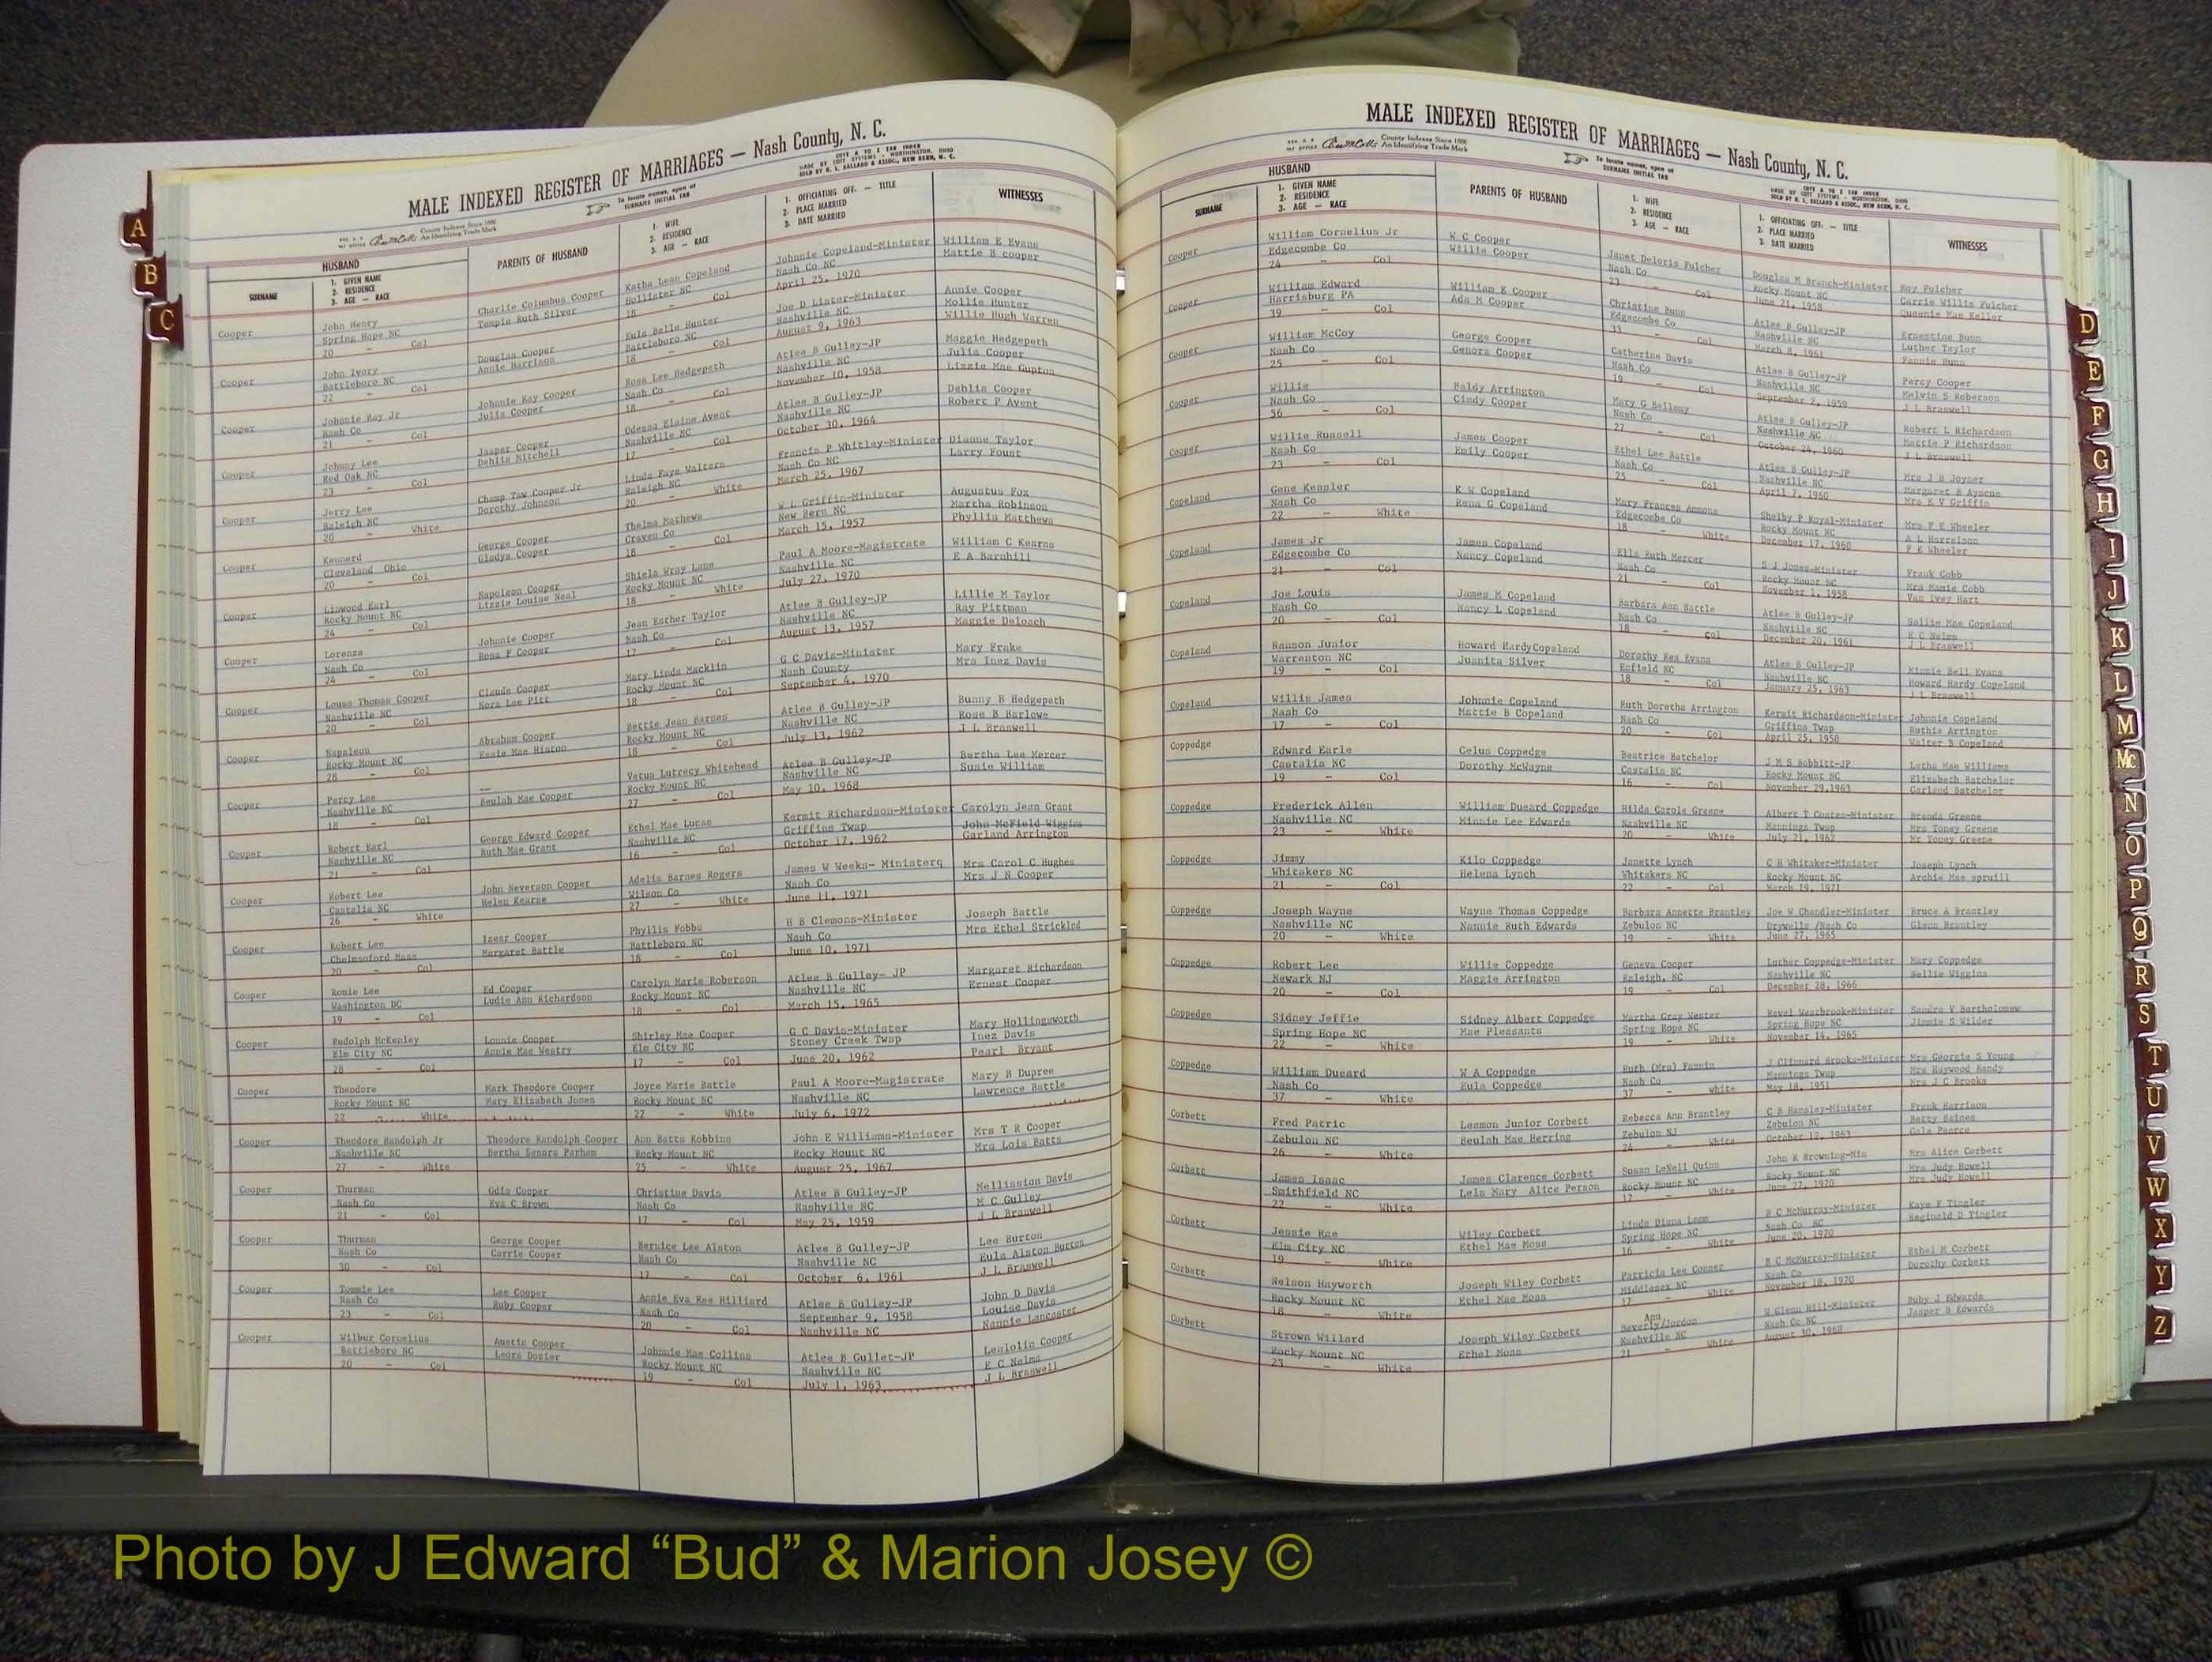 MALE INDEXED REGISTER OF MARRIAGES — Nash County, N. C.
County Indexes Since 1888
An Identifying Trade Mark
To locate names, open at
SURNAME INITIAL TAB
COTT A TO Z TAB INDEX
MADE BY COTT SYSTEMS - WORTHINGTON, OHIO
SOLD BY R. L. BALLARD & ASSOC., NEW BERN, N. C.
HUSBAND
SURNAME
1. GIVEN NAME
2. RESIDENCE
3. AGE — RACE
PARENTS OF HUSBAND
1. WIFE
2. RESIDENCE
3. AGE — RACE
1. OFFICIATING OFF. — TITLE
2. PLACE MARRIED
3. DATE MARRIED
WITNESSES
Cooper John Henry Charlie Columbus Cooper Katha Lean Copeland Johnnie Copeland-Minister William E Evans
Spring Hope NC Temple Ruth Silver Hollister NC Nash Co NC Mattie B cooper
20 - Col 18 - Col April 25, 1970
Cooper John Ivory Douglas Cooper Eula Belle Hunter Joe D Lister-Minister Annie Cooper
Battleboro NC Annie Harrison Battleboro NC Nashville NC Mollie Hunter
22 - Col 18 - Col August 9, 1963 Willie Hugh Warren
Cooper Johnnie Ray Jr Johnnie Ray Cooper Rosa Lee Hedgepeth Atlee B Gulley-JP Maggie Hedgepeth
Nash Co Julia Cooper Nash Co Nashville NC Julia Cooper
21 - Col 18 - Col November 10, 1958 Lizzie Mae Gupton
Cooper Johnny Lee Jasper Cooper Odessa Elaine Avent Atlee B Gulley-JP Dehlia Cooper
Red Oak NC Dehlia Mitchell Nashville NC Nashville NC Robert P Avent
23 - Col 17 - Col October 30, 1964
Cooper Jerry Lee Champ Taw Cooper Jr Linda Faye Walters Francis P Whitley-Minister Dianne Taylor
Raleigh NC Dorothy Johnson Raleigh NC Nash Co NC Larry Foust
20 - White 20 - White March 25, 1967
Cooper Kennerd George Cooper Thelma Mathews W L Griffin-Minister Augustus Fox
Cleveland Ohio Gladys Cooper Craven Co New Bern NC Martha Robinson
20 - Col 18 - Col March 15, 1957 Phyllis Matthews
Cooper Linwood Earl Napoleon Cooper Shiela Wray Lane Paul A Moore-Magistrate William C Kearns
Rocky Mount NC Lizzie Louise Neal Rocky Mount NC Nashville NC E A Barnhill
24 - Col 18 - White July 27, 1970
Cooper Lorenza Johnnie Cooper Jean Esther Taylor Atlee B Gulley-JP Lillie M Taylor
Nash Co Rosa F Cooper Nash Co Nashville NC Ray Pittman
24 - Col 17 - Col August 13, 1957 Maggie Deloach
Cooper Louss Thomas Cooper Claude Cooper Mary Linda Macklin G C Davis-Minister Mary Frake
Nashville NC Nora Lee Pitt Rocky Mount NC Nash County Mrs Inez Davis
20 - Col 18 - Col September 4, 1970
Cooper Napaleon Abraham Cooper Bettie Jean Barnes Atlee B Gulley-JP Bunny B Hedgepeth
Rocky Mount NC Essie Mae Hinton Rocky Mount NC Nashville NC Rose B Barlowe
28 - Col 18 - Col July 13, 1962 J L Braswell
Cooper Percy Lee -- Vetus Lutrecy Whitehead Atlee B Gulley-JP Bertha Lee Mercer
Nashville NC Beulah Mae Cooper Rocky Mount NC Nashville NC Susie William
18 - Col 27 - Col May 10, 1968
Cooper Robert Earl George Edward Cooper Ethel Mae Lucas Kermit Richardson-Minister Carolyn Jean Grant
Nashville NC Ruth Mae Grant Nashville NC Griffins Twsp John McField Wiggins
21 - Col 16 - Col October 17, 1962 Garland Arrington
Cooper Robert Lee John Neverson Cooper Adelia Barnes Rogers James W Weeks- Ministerq Mrs Carol C Hughes
Castalia NC Helen Kearse Wilson Co Nash Co Mrs J N Cooper
26 - White 27 - White June 11, 1971
Cooper Robert Lee Izear Cooper Phyllis Fobbs H B Clemons-Minister Joseph Battle
Chelmsoford Mass Margaret Battle Battleboro NC Nash Co Mrs Ethel Stricklnd
20 - Col 18 - Col June 10, 1971
Cooper Romie Lee Ed Cooper Carolyn Marie Roberson Atlee B Gulley- JP Margaret Richardson
Washington DC Ludie Ann Richardson Rocky Mount NC Nashville NC Ernest Cooper
19 - Col 18 - Col March 15, 1965
Cooper Rudolph McKenley Lonnie Cooper Shirley Mae Cooper G C Davis-Minister Mary Hollingsworth
Elm City NC Annie Mae Westry Elm City NC Stoney Creek Twsp Inez Davis
28 - Col 17 - Col June 20, 1962 Pearl Bryant
Cooper Theodore Mark Theodore Cooper Joyce Marie Battle Paul A Moore-Magistrate Mary B Dupree
Rocky Mount NC Mary Elizabeth Jones Rocky Mount NC Nashville NC Lawrence Battle
22 - White 22 - White July 6, 1972
Cooper Theodore Randolph Jr Theodore Randolph Cooper Ann Batts Robbins John E Williams-Minister Mrs T R Cooper
Nashville NC Bertha Senora Parham Rocky Mount NC Rocky Mount NC Mrs Lois Batts
27 - White 25 - White August 25, 1967
Cooper Thurman Odis Cooper Christine Davis Atlee B Gulley-JP Mellission Davis
Nash Co Eva C Brown Nash Co Nashville NC M C Gulley
21 - Col 17 - Col May 25, 1959 J L Braswell
Cooper Thurman George Cooper Bernice Lee Alston Atlee B Gulley-JP Lee Burton
Nash Co Carrie Cooper Nash Co Nashville NC Eula Alston Burton
30 - Col 17 - Col October 6, 1961 J L Braswell
Cooper Tommie Lee Lee Cooper Annie Eva Ree Hilliard Atlee B Gulley-JP John D Davis
Nash Co Ruby Cooper Nash Co September 9, 1958 Louise Davis
23 - Col 20 - Col Nashville NC Nannie Lancaster
Cooper Wilbur Cornelius Austin Cooper Johnnie Mae Collins Atlee B Gullet-JP Lealolin Cooper
Battleboro NC Leora Dozier Rocky Mount NC Nashville NC E C Nelms
20 - Col 19 - Col July 1, 1963 J L Braswell
MALE INDEXED REGISTER OF MARRIAGES — Nash County, N. C.
County Indexes Since 1888
An Identifying Trade Mark
To locate names, open at
SURNAME INITIAL TAB
COTT A TO Z TAB INDEX
MADE BY COTT SYSTEMS - WORTHINGTON, OHIO
SOLD BY R. L. BALLARD & ASSOC., NEW BERN, N. C.
HUSBAND
SURNAME
1. GIVEN NAME
2. RESIDENCE
3. AGE — RACE
PARENTS OF HUSBAND
1. WIFE
2. RESIDENCE
3. AGE — RACE
1. OFFICIATING OFF. — TITLE
2. PLACE MARRIED
3. DATE MARRIED
WITNESSES
Cooper William Cornelius Jr W C Cooper Janet Deloris Fulcher Douglas M Branch-Minister Roy Fulcher
Edgecombe Co Willie Cooper Nash Co Rocky Mount NC Carrie Willis Fulcher
24 - Col 23 - Col June 21, 1958 Queenie Mae Keller
Cooper William Edward William E Cooper Christine Bunn Atlee B Gulley-JP Ernestine Bunn
Harrisburg PA Ada M Cooper Edgecombe Co Nashville NC Luther Taylor
39 - Col 33 - Col March 8, 1961 Fannie Bunn
Cooper William McCoy George Cooper Catherine Davis Atlee B Gulley-JP Percy Cooper
Nash Co Genora Cooper Nash Co Nashville NC Melvin S Roberson
25 - Col 19 - Col September 2, 1959 J L Braswell
Cooper Willie Baldy Arrington Mary G Bellamy Atlee B Gulley-JP Robert L Richardson
Nash Co Cindy Cooper Nash Co Nashville NC Mattie P Richardson
56 - Col 27 - Col October 24, 1960 J L Braswell
Cooper Willie Russell James Cooper Ethel Lee Battle Atlee B Gulley-JP Mrs J B Joyner
Nash Co Emily Cooper Nash Co Nashville NC Margaret B Ayscue
23 - Col 25 - Col April 7, 1960 Mrs E V Griffin
Copeland Gene Kessler K W Copeland Mary Frances Ammons Shelby P Royal-Minister Mrs F E Wheeler
Nash Co Rena G Copeland Edgecombe Co Rocky Mount NC A L Harrelson
22 - White 18 - White December 17, 1960 F E Wheeler
Copeland James Jr James Copeland Ella Ruth Mercer S J Jones-Minister Frank Cobb
Edgecombe Co Nancy Copeland Nash Co Rocky Mount NC Mrs Mamie Cobb
21 - Col 21 - Col November 1, 1958 Van Ivey Hart
Copeland Joe Louis James M Copeland Barbara Ann Battle Atlee B Gulley-JP Sallie Mae Copeland
Nash Co Nancy L Copeland Nash Co Nashville NC E C Nelms
20 - Col 18 - col December 20, 1961 J L Braswell
Copeland Ranson Junior Howard HardyCopeland Dorothy Rea Evans Atlee B Gulley-JP Minnie Bell Evans
Warrenton NC Juanita Silver Enfield NC Nashville NC Howard Hardy Copeland
19 - Col 18 - Col January 25, 1963 J L Braswell
Copeland Willis James Johnnie Copeland Ruth Doretha Arrington Kermit Richardson-Minister Johnnie Copeland
Nash Co Mattie B Copeland Nash Co Griffins Twsp Ruthie Arrington
17 - Col 20 - Col April 25, 1958 Walter B Copeland
Coppedge Edward Earle Celus Coppedge Beatrice Batchelor J M S Bobbitt-JP Letha Mae Williams
Castalia NC Dorothy McWayne Castalia NC Rocky Mount NC Elizabeth Batchelor
19 - Col 16 - Col November 29,1963 Garland Batchelor
Coppedge Frederick Allen William Dueard Coppedge Hilda Carole Greene Albert T Coates-Minister Brenda Greene
Nashville NC Minnie Lee Edwards Nashville NC Mannings Twsp Mrs Toney Greene
23 - White 20 - White July 21, 1962 Mr Toney Greene
Coppedge Jimmy Kilo Coppedge Janette Lynch C H Whitaker-Minister Joseph Lynch
Whitakers NC Helena Lynch Whitakers NC Rocky Mount NC Archie Mae spruill
21 - Col 22 - Col March 19, 1971
Coppedge Joseph Wayne Wayne Thomas Coppedge Barbara Annette Brantley Joe W Chandler-Minister Bruce A Brantley
Nashville NC Nannie Ruth Edwards Zebulon NC Drywells /Nash Co Glenn Brantley
20 - White 19 - White June 27, 1965
Coppedge Robert Lee Willie Coppedge Geneva Cooper Luther Coppedge-Minister Mary Coppedge
Newark NJ Maggie Arrington Raleigh, NC Nashville NC Nellie Wiggins
20 - Col 19 - Col December 28, 1966
Coppedge Sidney Jeffie Sidney Albert Coppedge Martha Gray Wester Revel Westbrook-Minister Sandra V Bartholomew
Spring Hope NC Mae Pleasants Spring Hope NC Spring Hope NC Jimmie S Wilder
22 - White 19 - White November 14, 1965
Coppedge William Dueard W A Coppedge Ruth (Mrs) Fannin J Clinnard Brooks-Minister Mrs Georgie S Young
Nash Co Eula Coppedge Nash Co Mannings Twsp Mrs Haywood Bandy
37 - White 37 - white May 18, 1951 Mrs J C Brooks
Corbett Fred Patric Leamon Junior Corbett Rebecca Ann Brantley C B Hansley-Minister Frank Harrison
Zebulon NC Beulah Mae Herring Zebulon NJ Zebulon NC Betty Baines
26 - White 24 - White October 12, 1963 Gale Pearce
Corbett James Isaac James Clarence Corbett Susan LeNell Quinn John R Browning-Min Mrs Alice Corbett
Smithfield NC Lela Mary Alice Person Rocky Mount NC Rocky Mount NC Mrs Judy Howell
22 - White 17 - White June 27, 1970 Mrs Judy Howell
Corbett Jessie Rae Wiley Corbett Linda Diana Lamm B C McMurray-Minister Kaye F Tingler
Elm City NC Ethel Mae Moss Spring Hope NC Nash Co NC Reginald D Tingler
19 - White 16 - White June 20, 1970
Corbett Nelson Hayworth Joseph Wiley Corbett Patricia Lee Conner B C McMurray-Minister Ethel M Corbett
Rocky Mount NC Ethel Mae Moss Middlesex NC Nash Co Dorothy Corbett
18 - White 17 - White November 18, 1970
Corbett Strown Willard Joseph Wiley Corbett Ann Beverly/Jordon W Glenn Hill-Minister Ruby J Edwards
Rocky Mount NC Ethel Moss Nashville NC Nash Co NC Jasper B Edwards
23 - White 21 - White August 30, 1968
A
B
C
D
E
F
G
H
I
J
K
L
M
Mc
N
O
P
Q
R
S
T
U
V
W
X
Y
Z
Photo by J Edward “Bud” & Marion Josey ©